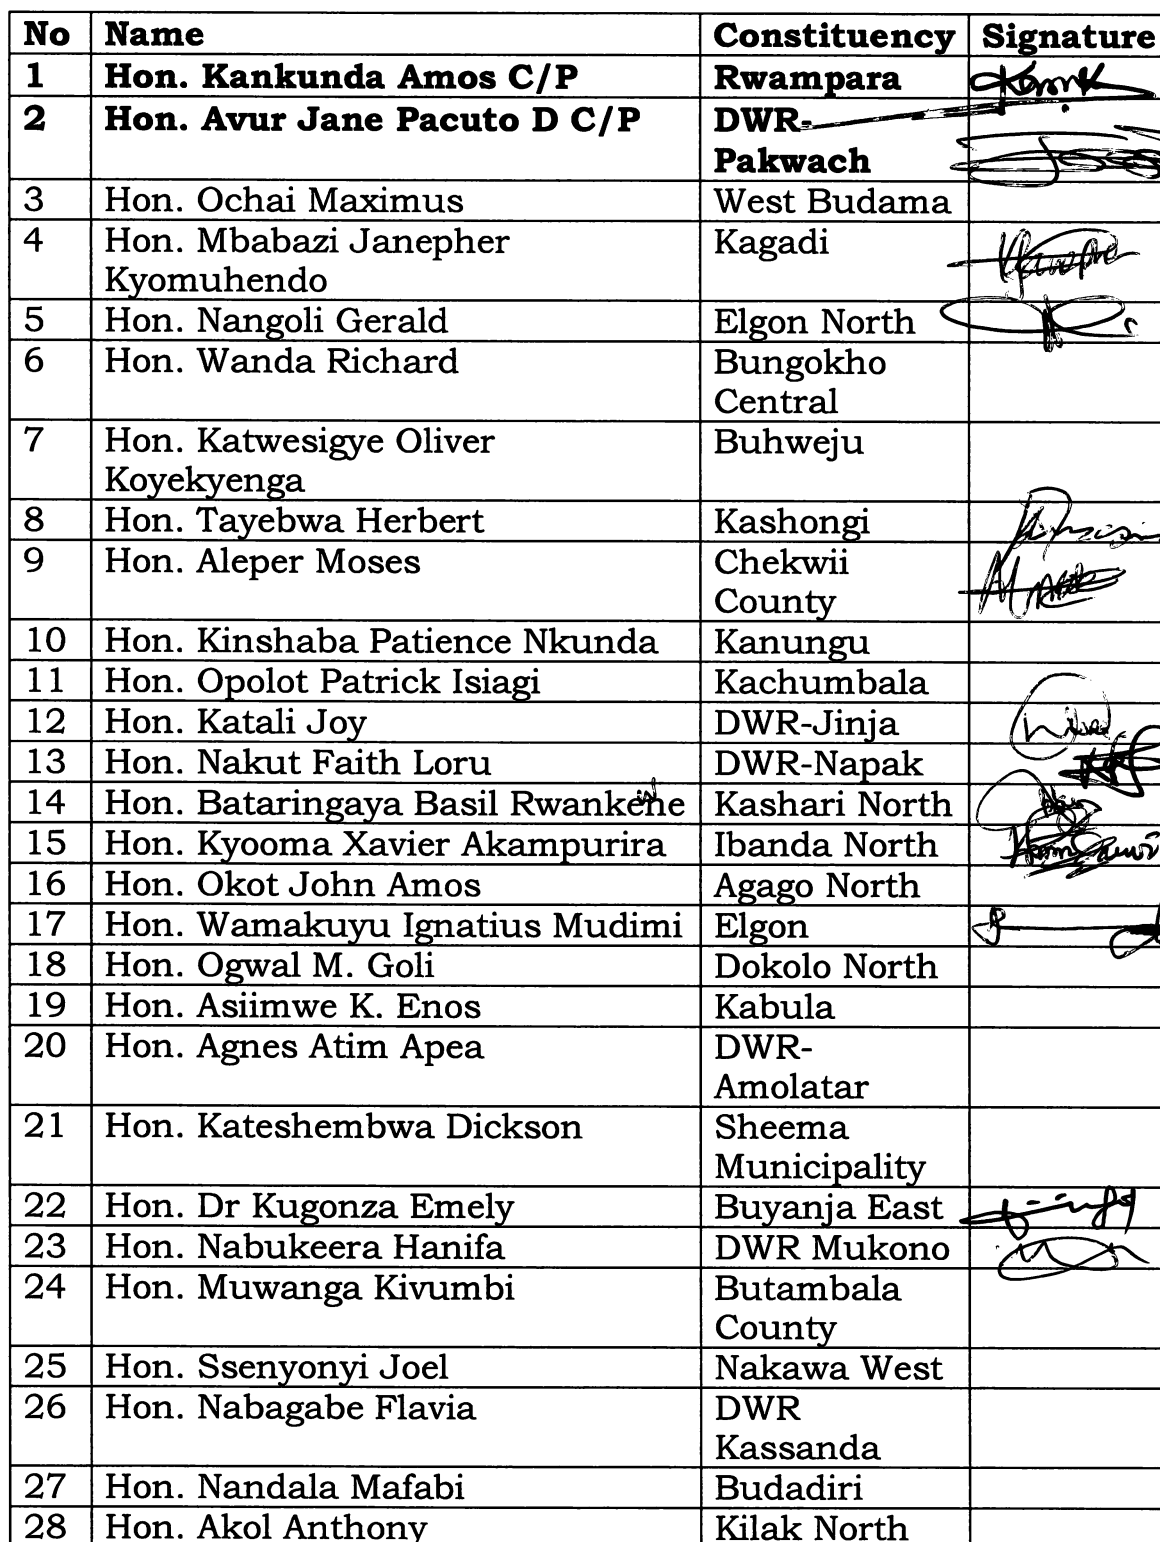 No Name Constituency Signature
1 Hon. Kankunda Amos C/P Rwampara
2 Hon. Avur Jane Pacuto D C/P DWR-
Pakwach
3 Hon. Ochai Maximus West Budama
4 Hon. Mbabazi Janepher Kagadi
Kyomuhendo
5 Hon. Nangoli Gerald Elgon North
6 Hon. Wanda Richard Bungokho
Central
7 Hon. Katwesigye Oliver Buhweju
Koyekyenga
8 Hon. Tayebwa Herbert Kashongi
9 Hon. Aleper Moses Chekwii
County
10 Hon. Kinshaba Patience Nkunda Kanungu
11 Hon. Opolot Patrick Isiagi Kachumbala
12 Hon. Katali Joy DWR-Jinja
13 Hon. Nakut Faith Loru DWR-Napak
14 Hon. Bataringaya Basil Rwankene Kashari North
15 Hon. Kyooma Xavier Akampurira Ibanda North
16 Hon. Okot John Amos Agago North
17 Hon. Wamakuyu Ignatius Mudimi Elgon
18 Hon. Ogwal M. Goli Dokolo North
19 Hon. Asiimwe K. Enos Kabula
20 Hon. Agnes Atim Apea DWR-
Amolatar
21 Hon. Kateshembwa Dickson Sheema
Municipality
22 Hon. Dr Kugonza Emely Buyanja East
23 Hon. Nabukeera Hanifa DWR Mukono
24 Hon. Muwanga Kivumbi Butambala
County
25 Hon. Ssenyonyi Joel Nakawa West
26 Hon. Nabagabe Flavia DWR
Kassanda
27 Hon. Nandala Mafabi Budadiri
28 Hon. Akol Anthony Kilak North